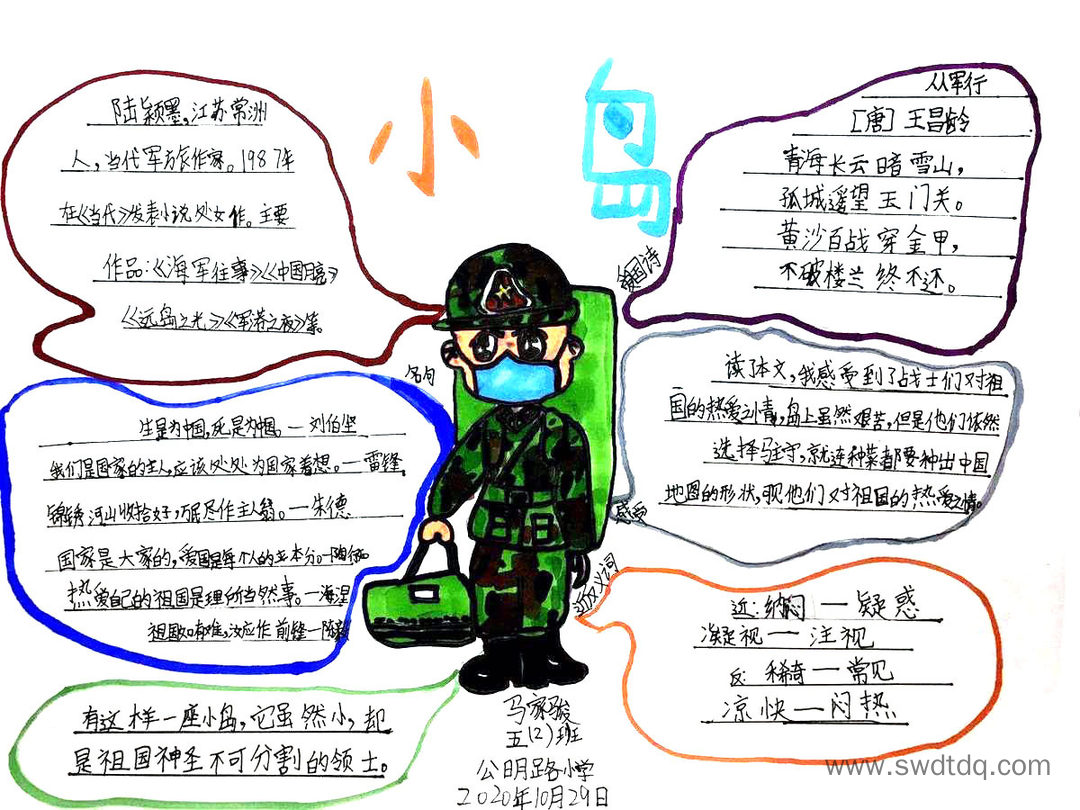 小岛
陆颖墨,江苏常洲
人,当代军旅作家。1987年
在《当代》发表小说处女作。主要
作品:《海军往事》《中国月亮》
《远岛之光》《军港之夜》等。
从军行
[唐] 王昌龄
青海长云暗雪山,
孤城遥望玉门关。
黄沙百战穿金甲,
不破楼兰终不还。
爱国诗
名句
生是为中国,死是为中国。一 刘伯坚
我们是国家的主人,应该处处为国家着想。一雷锋
锦绣河山收拾好,万民尽作主人翁。一朱德
国家是大家的,爱国是每个人的本分。一陶行知
热爱自己的祖国是理所当然事。一海涅
祖国如有难,汝应作前锋一陈毅
读了本文,我感受到了战士们对祖
国的热爱之情,岛上虽然艰苦,但是他们依然
选择驻守,就连种菜都要种出中国
地图的形状,现他们对祖国的热爱之情。
感悟
近反义词
近:纳闷 一疑惑
凝视 一 注视
反: 稀奇一常见
凉快一闷热
有这样一座小岛,它虽然小,却
是祖国神圣不可分割的领土。
马家骏
五(2)班
公明路小学
2020年10月29日
www.swdtdq.com